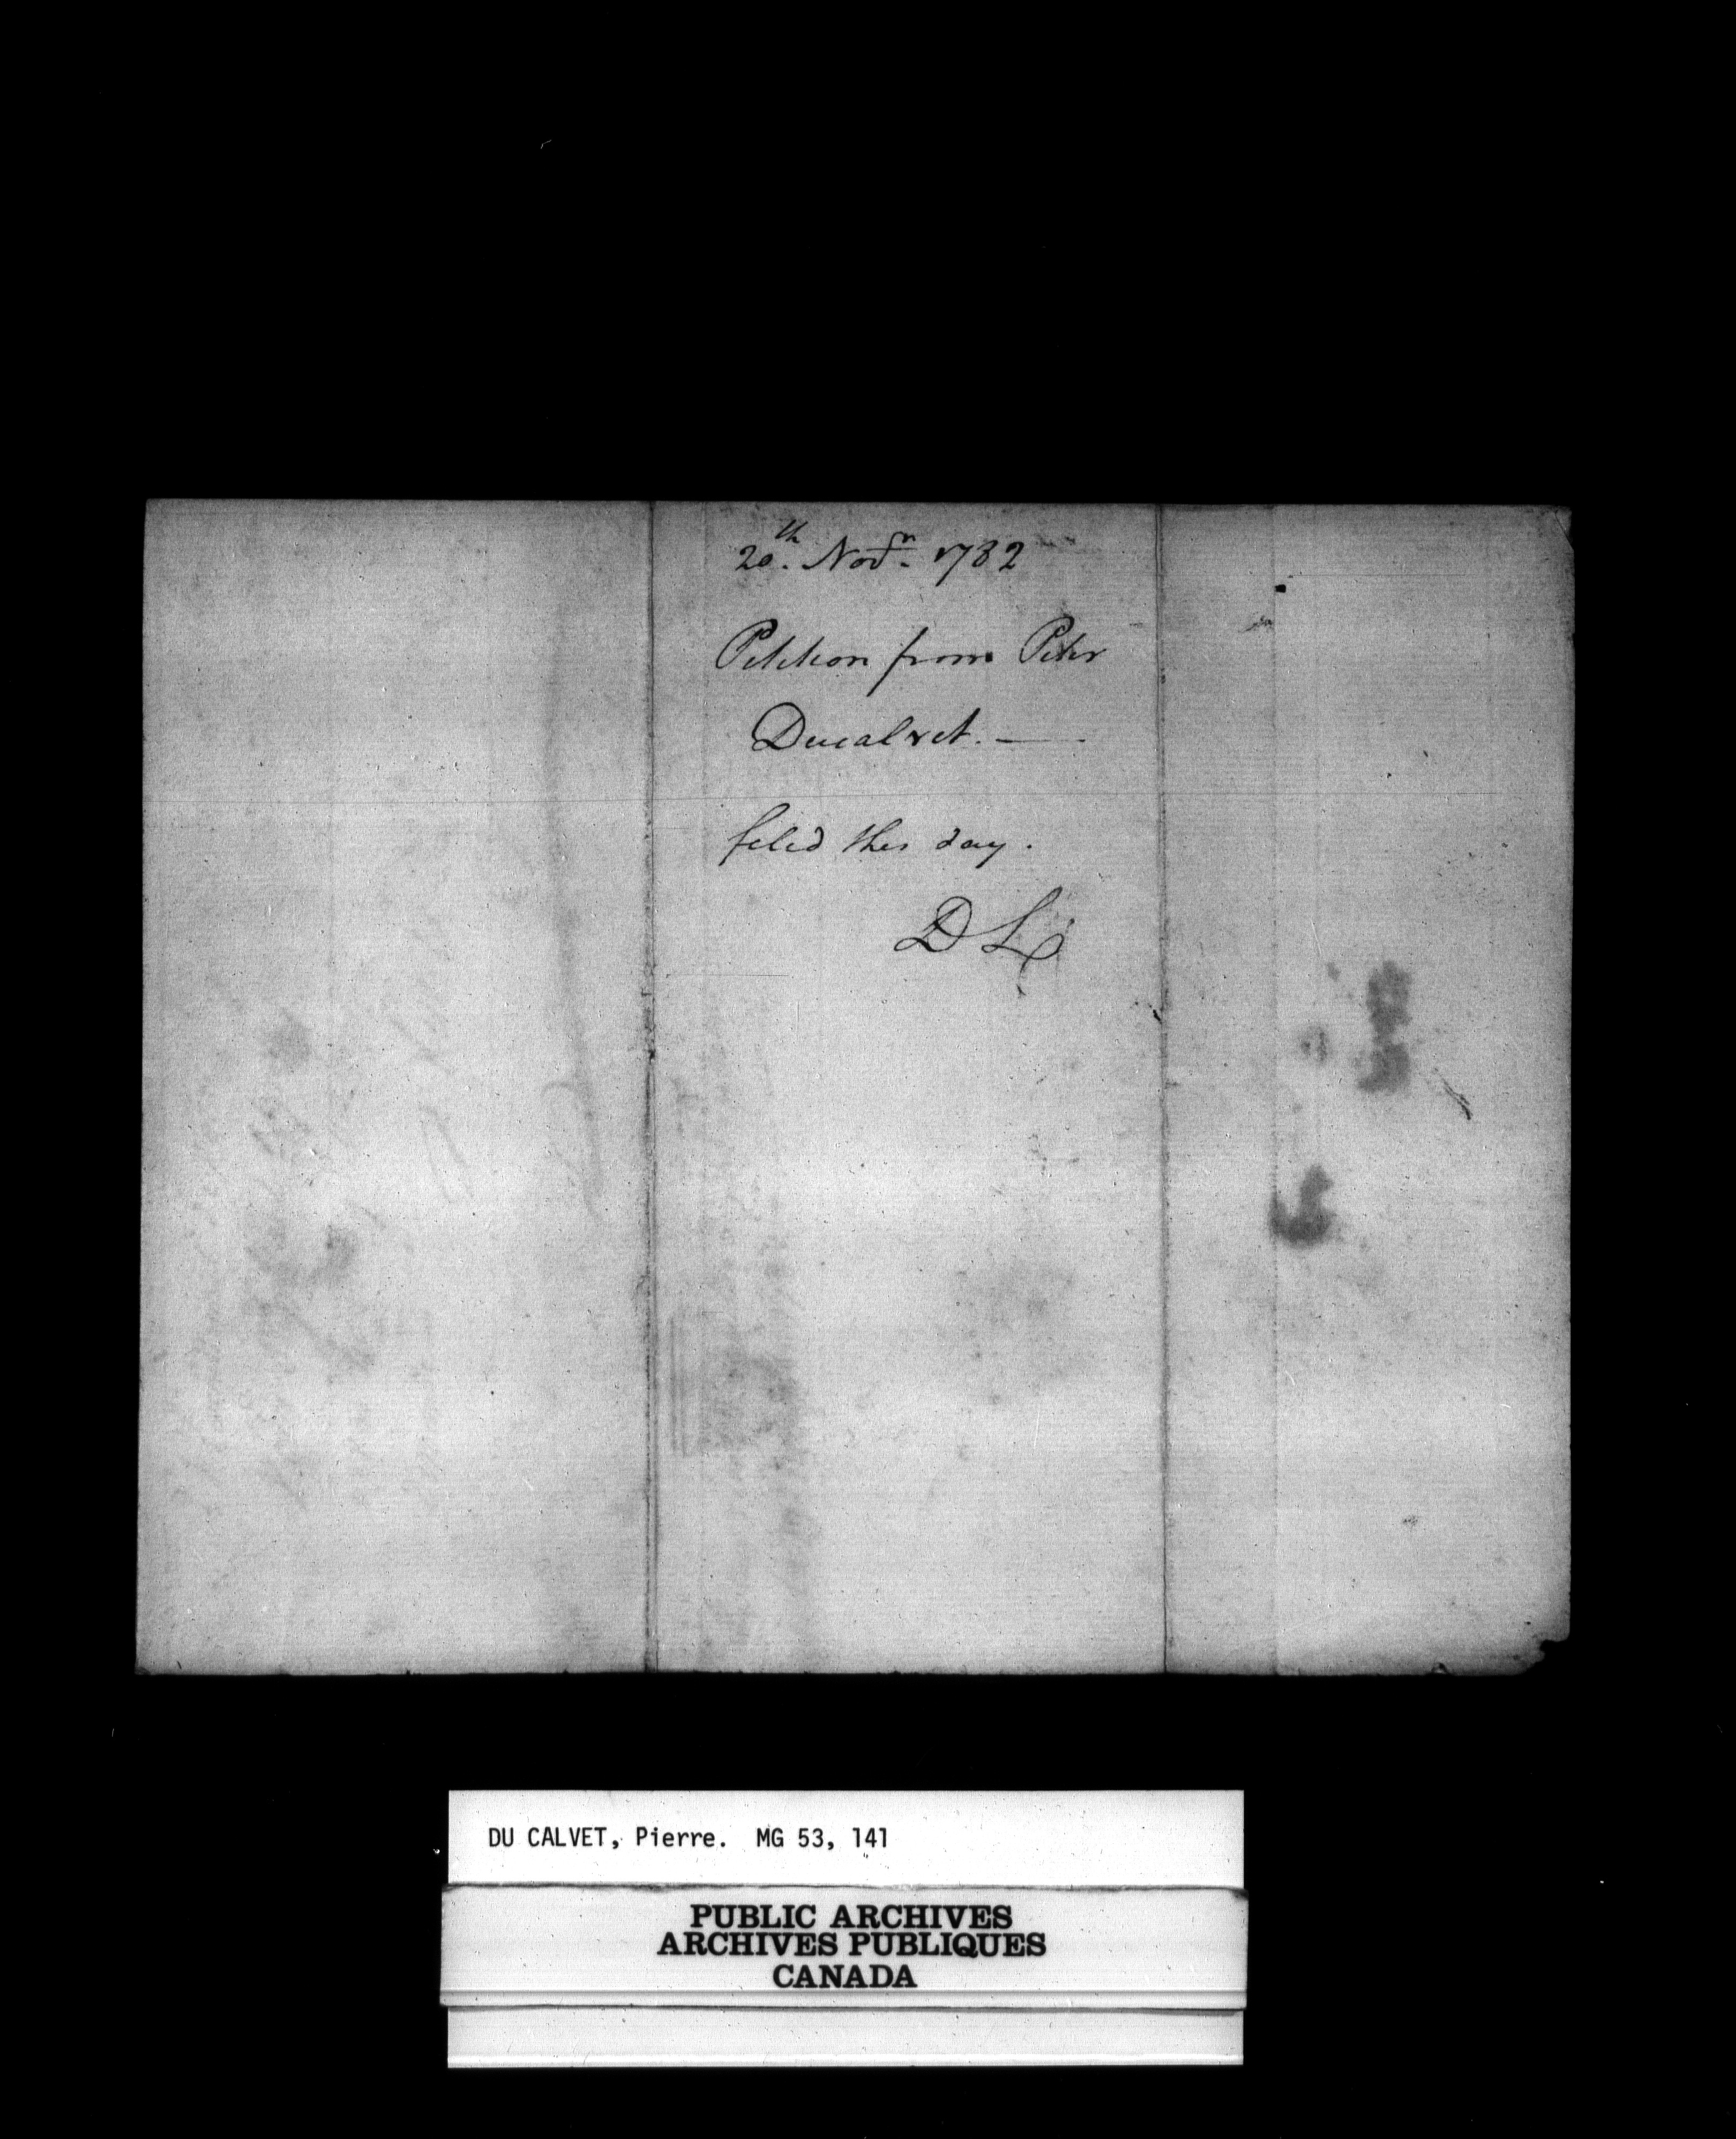 20th. Novr. 1782
Petition from Peter
Ducalvet. —
filed this day.
DL
DU CALVET, Pierre. MG 53, 141
PUBLIC ARCHIVES
ARCHIVES PUBLIQUES
CANADA